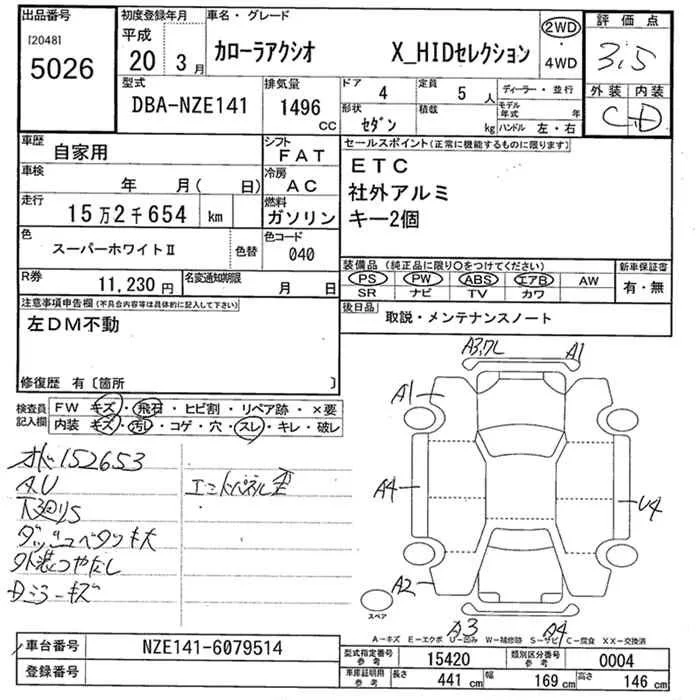 出品番号
[2048]
5026
初度登録年月
平成
20 3月
車名・グレード
カローラアクシオ X_HIDセレクション
2WD
・
4WD
評価点
3.5
外装 内装
C D
型式
DBA-NZE141
排気量
1496
CC
ドア 4
形状 セダン
定員 5人
積載 kg
ディーラー・並行
モデル年式 年
ハンドル 左・右
車歴
自家用
シフト
FAT
車検
年 月( 日)
冷房
AC
走行
15万2千654 km
燃料
ガソリン
色
スーパーホワイトⅡ
色替
色コード
040
R券
11,230円
名変通知期限
月 日
セールスポイント(正常に機能するものに限ります)
ETC
社外アルミ
キー2個
装備品 (純正品に限り○をつけてください)
PS PW ABS エアB AW
SR ナビ TV カワ
新車保証書
有・無
後日品
取説・メンテナンスノート
注意事項申告欄(不具合内容等は具体的に記入して下さい)
左DM不動
修復歴 有〔箇所 〕
検査員
記入欄
FW キズ・飛石・ヒビ割・リペア跡・×要
内装 キズ・汚レ・コゲ・穴・スレ・キレ・破レ
152653
AU
下廻りS
外装つやなし
Dミラーキズ
エンドパネル歪
A1
A1
A4
U4
A2
A3
A4
スペア
A-キズ E-エクボ U-凹み W-補修跡 S-サビ C-腐食 XX-交換済
車台番号
NZE141-6079514
登録番号
型式指定番号
参考
15420
類別区分番号
参考
0004
車庫証明用
参考
長さ
441 cm
幅
169 cm
高さ
146 cm